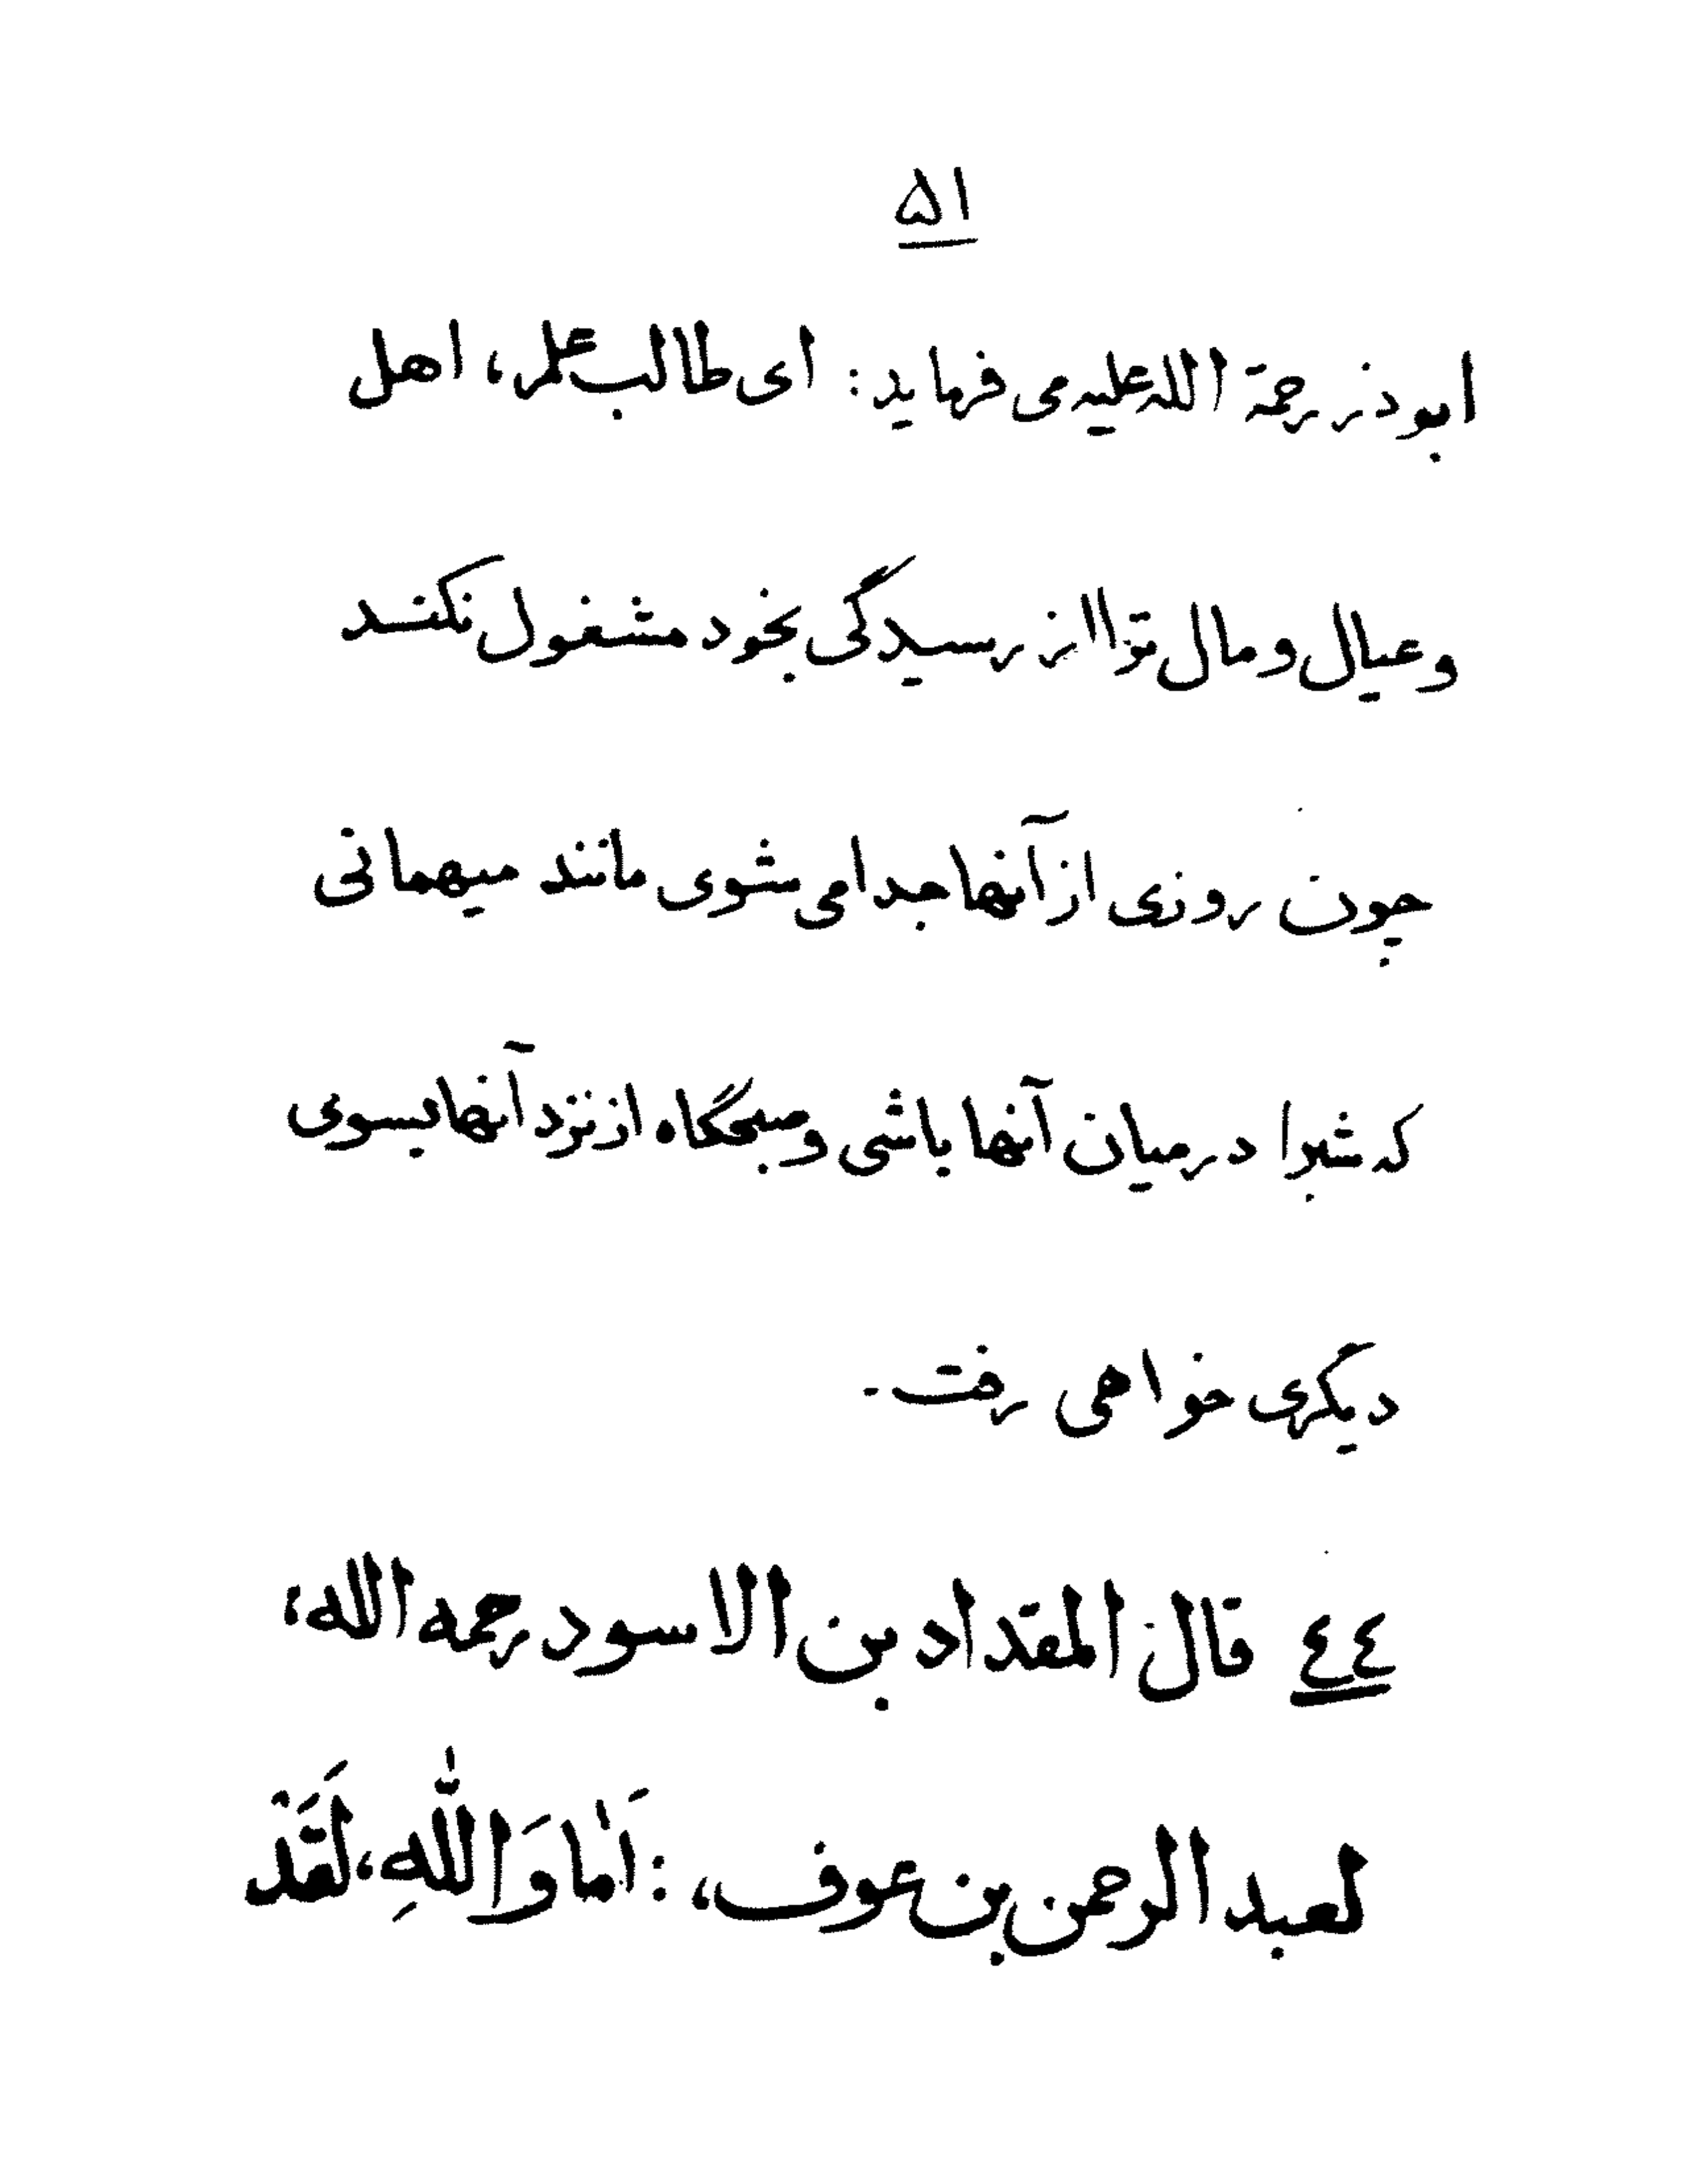 ۵۱
ابوذر رحمة الله علیه می فرماید: ای طالب علم، اهل
و عیال و مال ترا از رسیدگی بخود مشغول نکنند
چون روزی از آنها جدا می شوی مانند میهمانی
که شبرا در میان آنها باشی و صبحگاه از نزد آنها بسوی
دیگری خواهی رفت.
٤٤ قال المقداد بن الاسود رحمه الله،
لعبد الرحمن بن عوف،: اَمٰا وَاللّٰهِ، لَقَدْ